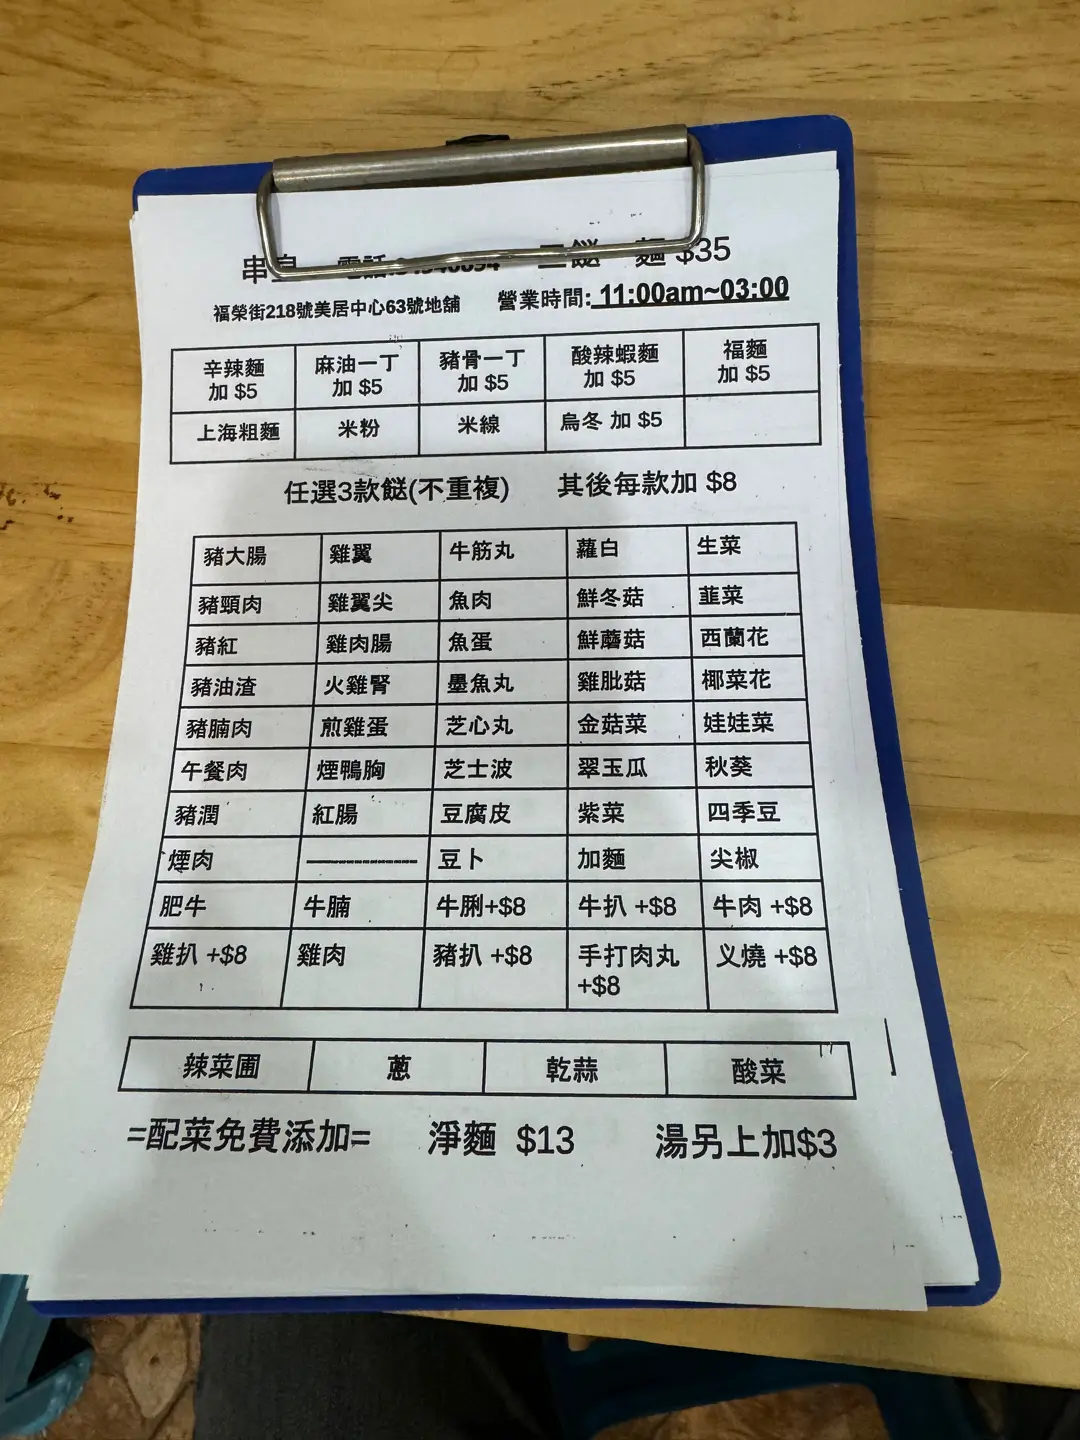 串 $35
福榮街218號美居中心63號地舖 營業時間: 11:00am~03:00
辛辣麵 加 $5 麻油一丁 加 $5 豬骨一丁 加 $5 酸辣蝦麵 加 $5 福麵 加 $5
上海粗麵 米粉 米線 烏冬 加 $5
任選3款餸(不重複) 其後每款加 $8
豬大腸 雞翼 牛筋丸 蘿白 生菜
豬頸肉 雞翼尖 魚肉 鮮冬菇 韮菜
豬紅 雞肉腸 魚蛋 鮮蘑菇 西蘭花
豬油渣 火雞腎 墨魚丸 雞肶菇 椰菜花
豬腩肉 煎雞蛋 芝心丸 金菇菜 娃娃菜
午餐肉 煙鴨胸 芝士波 翠玉瓜 秋葵
豬潤 紅腸 豆腐皮 紫菜 四季豆
煙肉 ---------------- 豆卜 加麵 尖椒
肥牛 牛腩 牛脷+$8 牛扒 +$8 牛肉 +$8
雞扒 +$8 雞肉 豬扒 +$8 手打肉丸 +$8 义燒 +$8
辣菜圃 蔥 乾蒜 酸菜
=配菜免費添加= 淨麵 $13 湯另上加$3